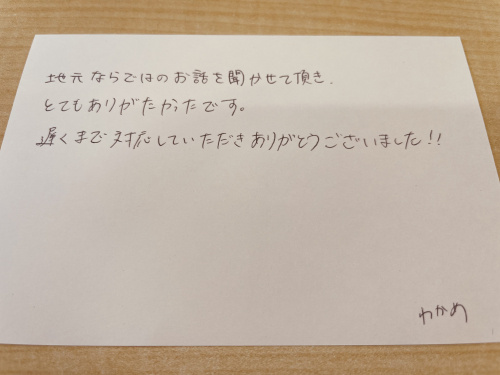 地元ならではのお話を聞かせて頂き、
とてもありがたかったです。
遅くまで対応していただきありがとうございました!!
わかめ